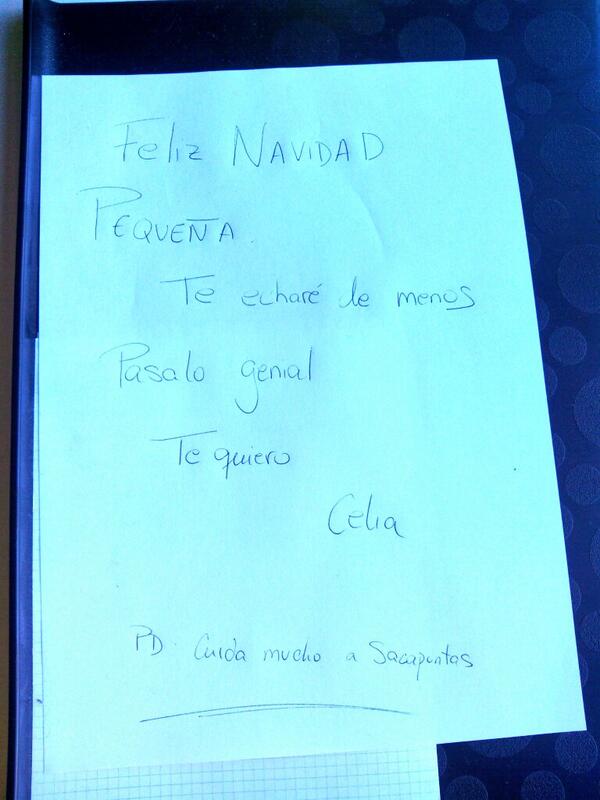 Feliz NAVIDAD
PEQUEÑA.
Te echaré de menos
Pasalo genial
Te quiero
Celia
PD. Cuida mucho a Sacapuntas